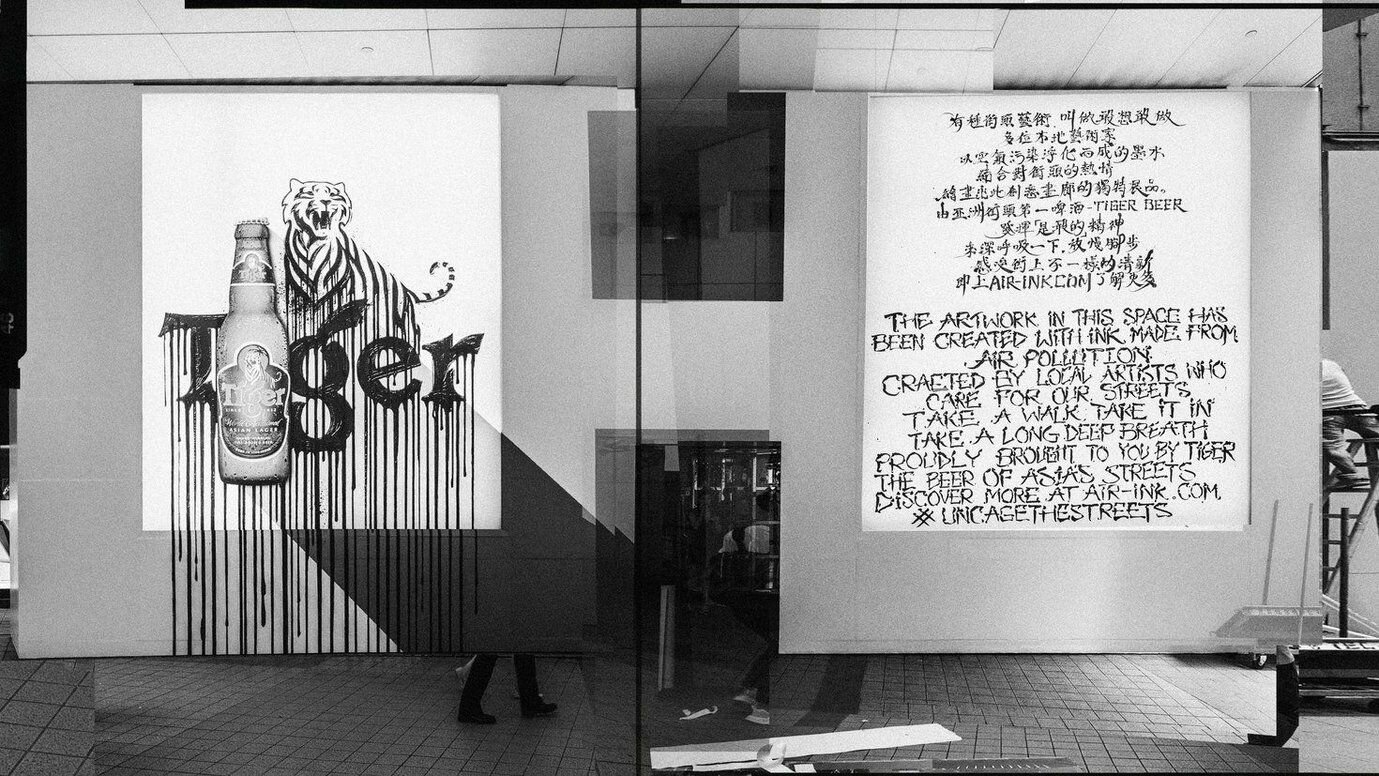 Tiger
Tiger
ASIAN LAGER
有種街頭藝術 叫做敢想敢做
多位本地藝術家
以空氣污染淨化而成的墨水
結合對街頭的熱情
繪畫出此創意畫廊的獨特展品。
由亞洲街頭第一啤酒-TIGER BEER
發揮「是敢的精神
來深呼吸一下,放慢腳步
感受街上不一樣的清新
即上AIR-INK.COM了解更多
THE ARTWORK IN THIS SPACE HAS
BEEN CREATED WITH INK MADE FROM
AIR POLLUTION
CRAFTED BY LOCAL ARTISTS WHO
CARE FOR OUR STREETS
TAKE A WALK TAKE IT IN
TAKE A LONG DEEP BREATH
PROUDLY BROUGHT TO YOU BY TIGER
THE BEER OF ASIA'S STREETS
DISCOVER MORE AT AIR-INK.COM.
# UNCAGETHESTREETS